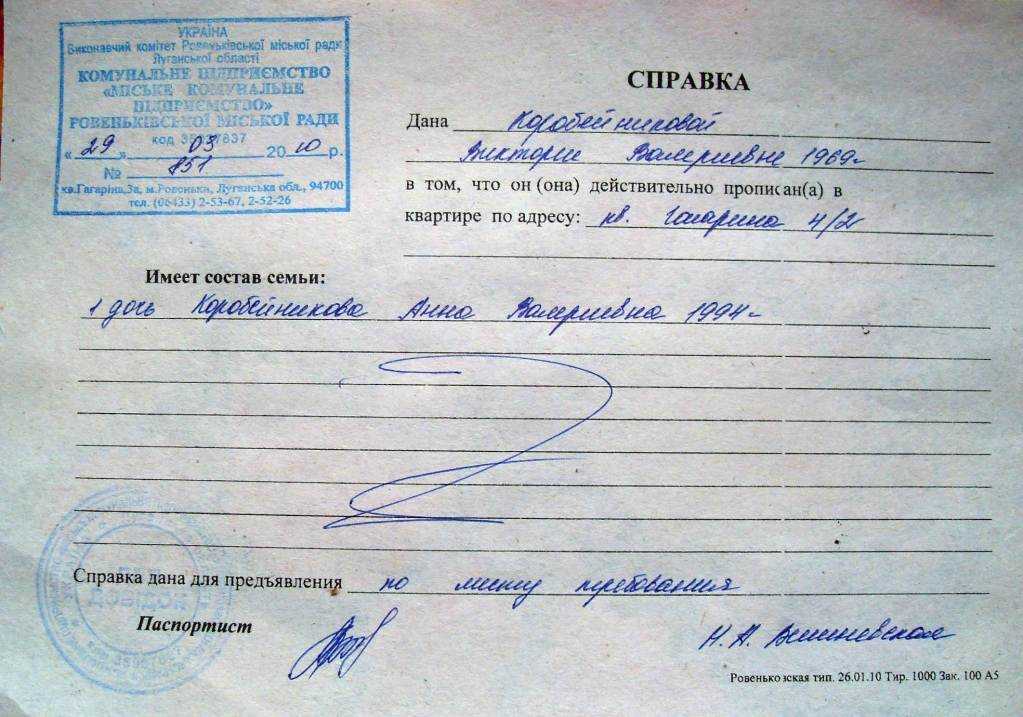 УКРАЇНА
Виконавчий комітет Ровеньківської міської ради
Луганської області
КОМУНАЛЬНЕ ПІДПРИЄМСТВО
«МІСЬКЕ КОМУНАЛЬНЕ
ПІДПРИЄМСТВО»
РОВЕНЬКІВСЬКОЇ МІСЬКОЇ РАДИ
код
«29» 03 2010 р.
№ 851
кв.Гагаріна,3а, м.Ровеньки, Луганська обл., 94700
тел. (06433) 2-53-67, 2-52-26
СПРАВКА
Дана Коробейниковой
Виктории Валериевне 1969г
в том, что он (она) действительно прописан(а) в
квартире по адресу: кв. Гагарина 4/2
Имеет состав семьи:
1 дочь Коробейникова Анна Валериевна 1994г
Справка дана для предъявления по месту требования
ДЛЯ
ДОВІДОК
Паспортист
Н.А. Вишневская
Ровеньковская тип. 26.01.10 Тир. 1000 Зак. 100 А5